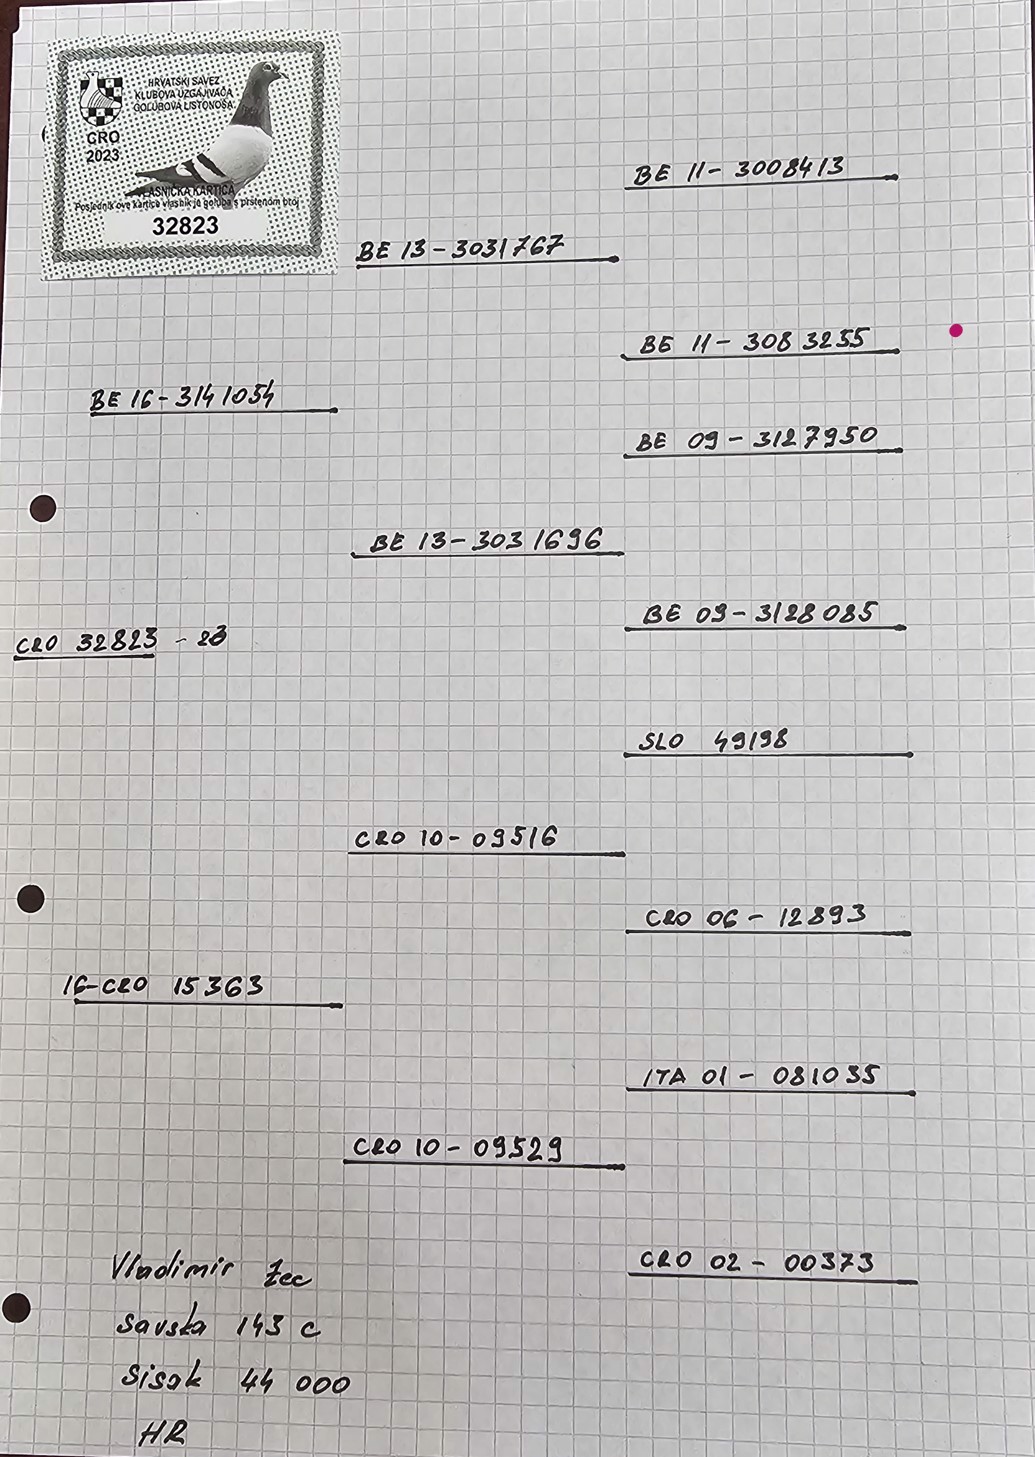 HRVATSKI SAVEZ
KLUBOVA UZGAJIVAČA
GOLUBOVA LISTONOŠA
CRO
2023
VLASNIČKA KARTICA
Posjednik ove kartice vlasnik je goluba s prstenom broj
32823
BE 11- 3008413
BE 13-3031767
BE 11- 3083255
BE 16-3141054
BE 09-3127950
BE 13-3031696
BE 09-3128085
CRO 32823 - 23
SLO 49198
CRO 10- 09516
CRO 06- 12893
16-CRO 15363
ITA 01- 081035
CRO 10- 09529
CRO 02- 00373
Vladimir Zec
Savska 143 c
Sisak 44 000
HR